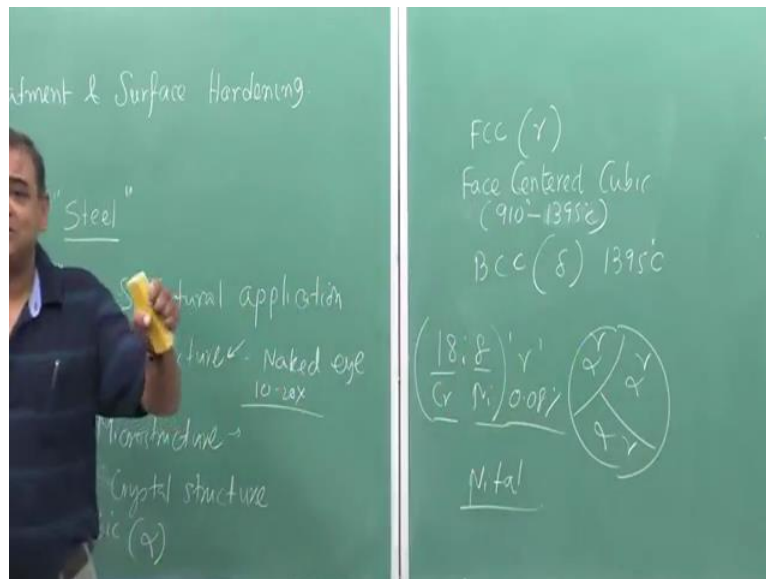 atment & Surface Hardening.
"Steel"
tural application
ture ✓ - Naked eye
10-20X
Microstructure -
Crystal structure
ic (α)
FCC (γ)
Face Centered Cubic
(910°-1395°C)
BCC (δ) 1395°C
(18:8) 'γ'
Cr Ni 0.08%
α γ
α γ
α γ
Nital